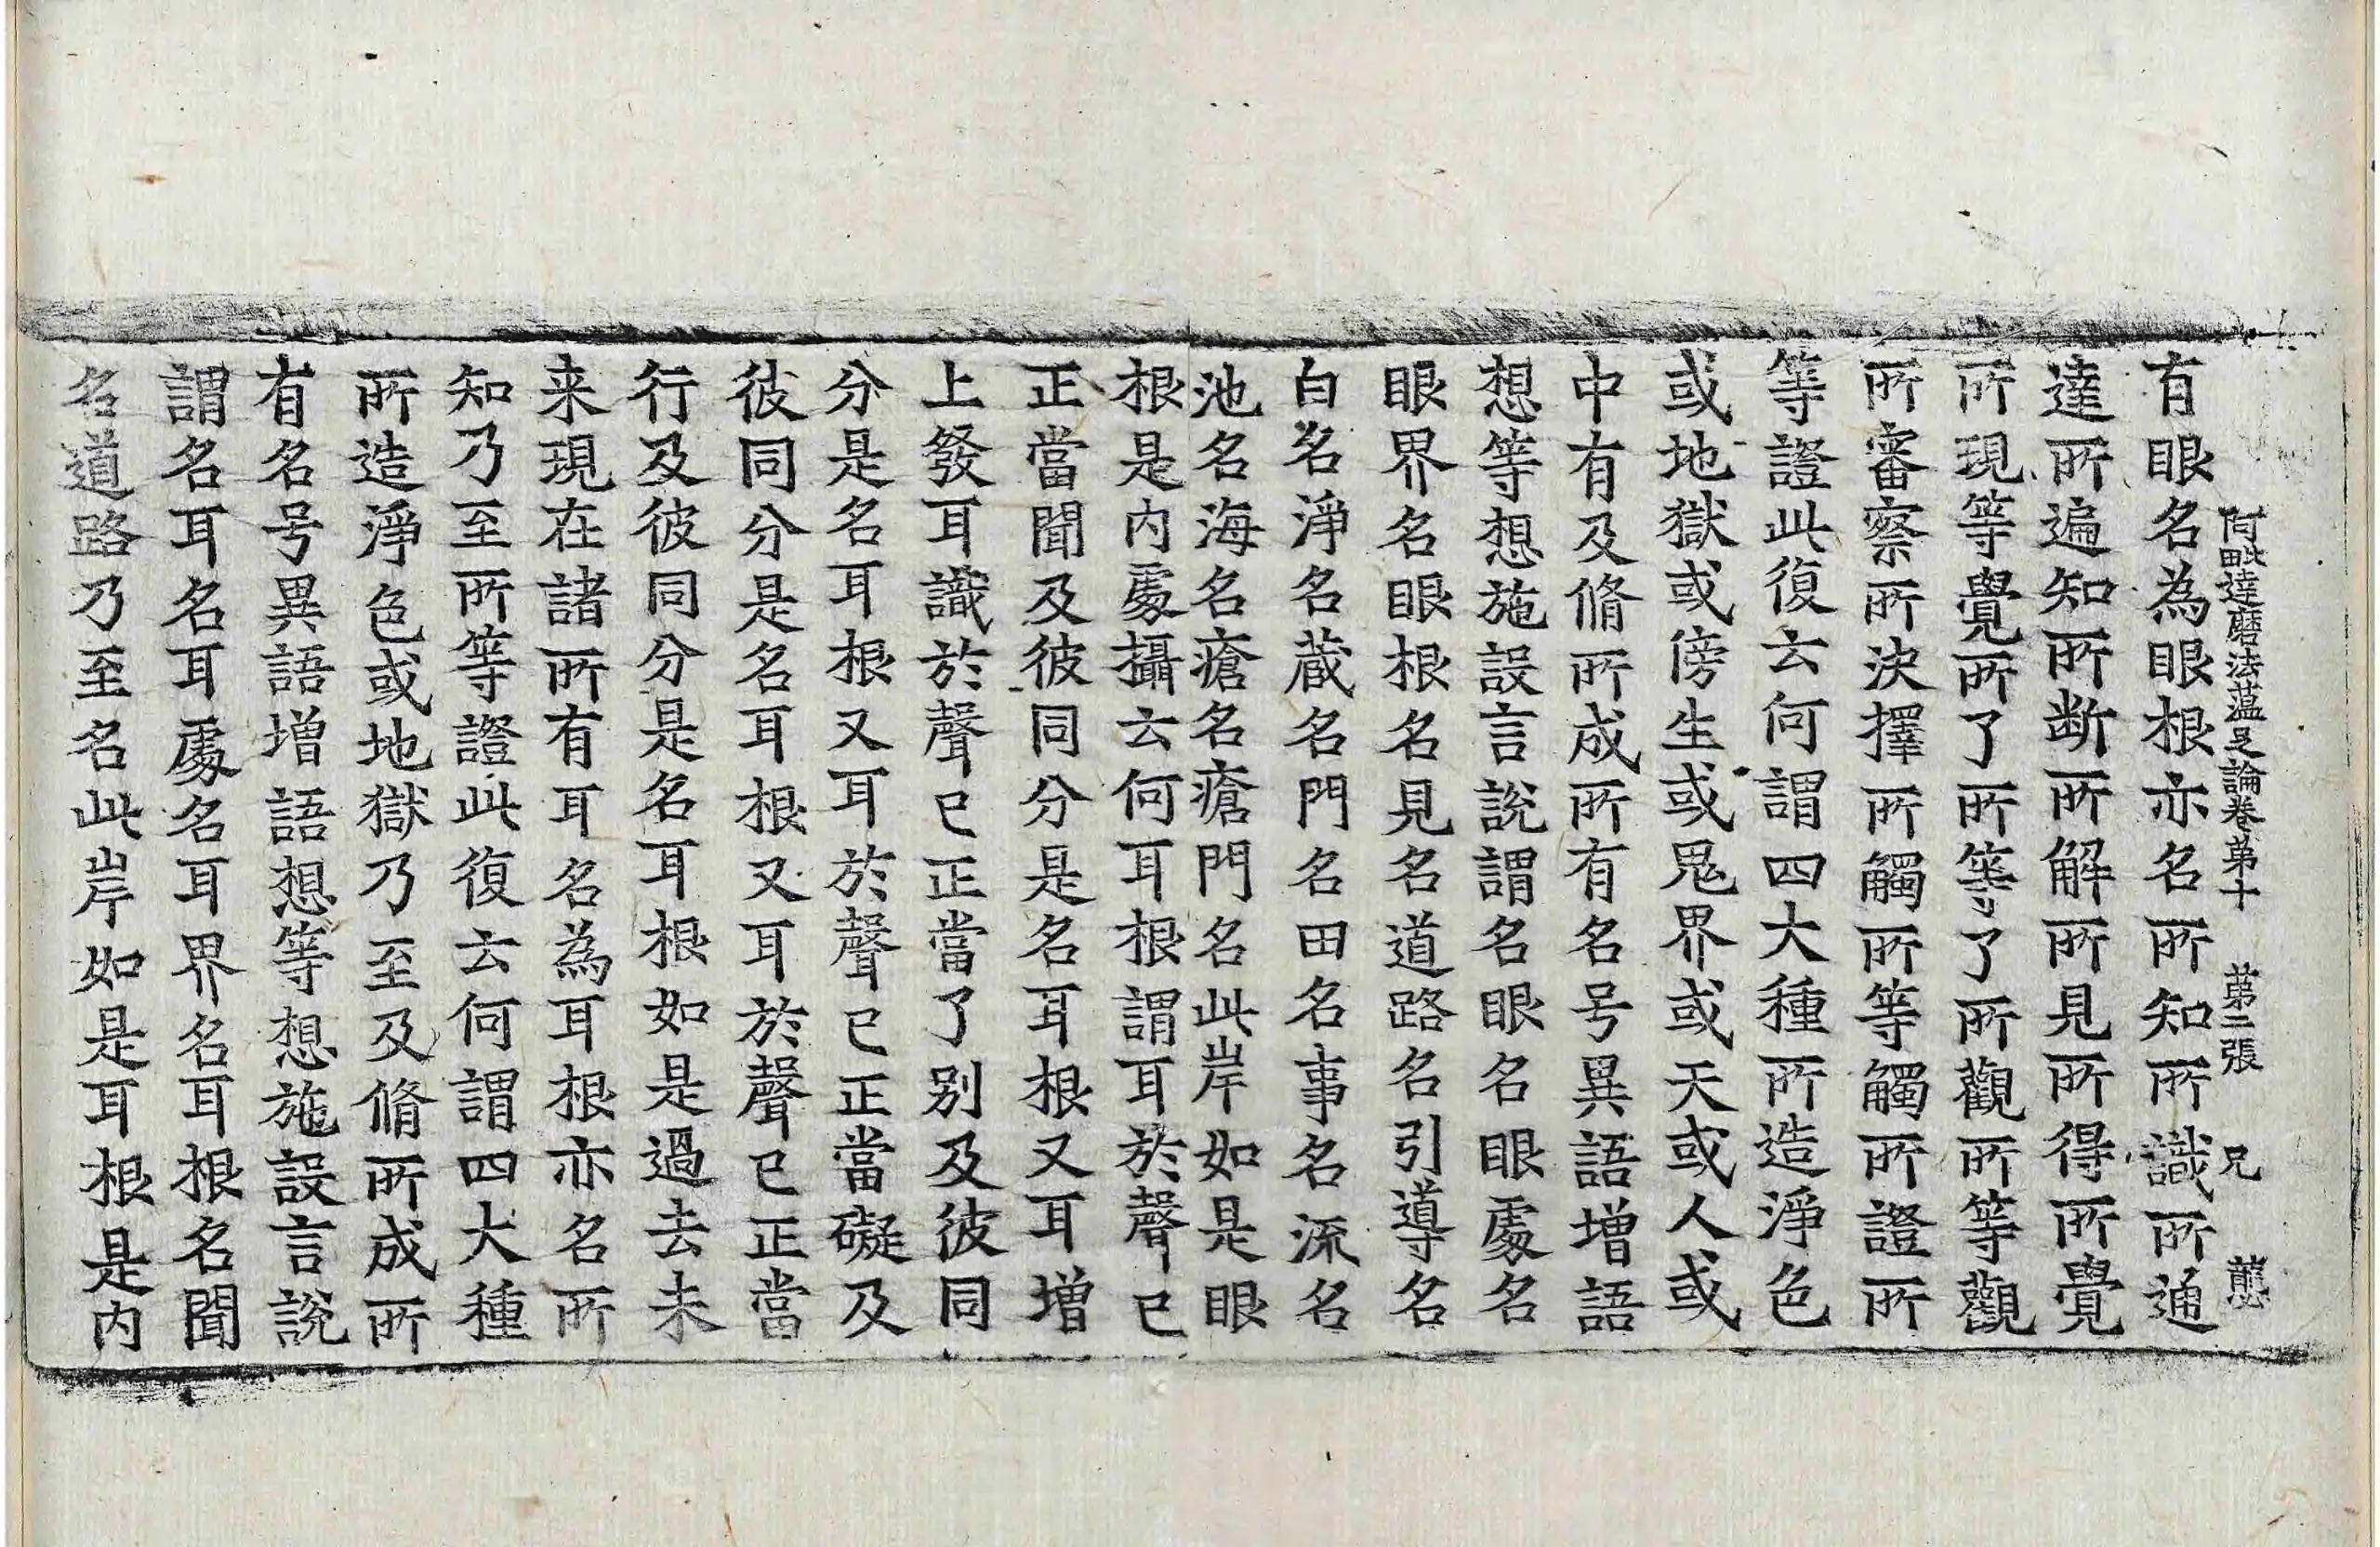 阿毗達磨法蕴足論卷第十 第二張 兄
有眼名為眼根亦名所知所識所通
達所遍知所断所解所見所得所覺
所現等覺所了所等了所觀所等觀
所審察所決擇所觸所等觸所證所
等證此復云何謂四大種所造淨色
或地獄或傍生或鬼界或天或人或
中有及脩所成所有名号異語増語
想等想施設言說謂名眼名眼處名
眼界名眼根名見名道路名引導名
白名淨名蔵名門名田名事名流名
池名海名瘡名瘡門名此岸如是眼
根是内處攝云何耳根謂耳於聲已
正當聞及彼同分是名耳根又耳増
上發耳識於聲已正當了别及彼同
分是名耳根又耳於聲已正當礙及
彼同分是名耳根又耳於聲已正當
行及彼同分是名耳根如是過去未
来現在諸所有耳名為耳根亦名所
知乃至所等證此復云何謂四大種
所造淨色或地獄乃至及脩所成所
有名号異語増語想等想施設言說
謂名耳名耳處名耳界名耳根名聞
名道路乃至名此岸如是耳根是内